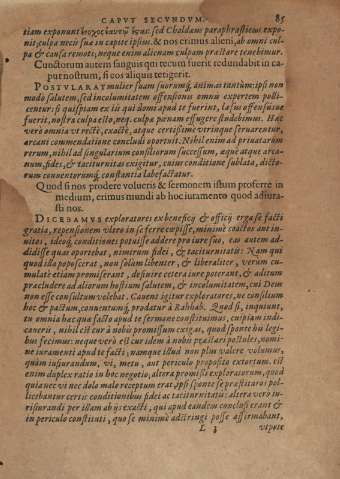 CAPVT SECVNDVM. 85
tiam exponunt
sed Chaldæus paraphrasticus expo-
nit, culpa necis suæ in capite ipsius. & nos crimus alieni, ab omni cul-
pa & causa remoti; neque enim alienam culpam præstare tenebimur.
Cunctorum autem sanguis qui tecum fuerit redundabit in ca-
put nostrum, si eos aliquis tetigerit.
POSTVLARAT mulier suam suorumq́; animas tantùm: ipsi non
modo salutem, sed incolumitatem offensionis omnis expertem polli-
centur: si quispiam ex iis qui domi apud te fuerint, læsus offensusue
fuerit, nostra culpa esto, neq. culpæ pœnam effugere studebimus. Hæc
vero omnia vt rectè, exactè, atque certissimè vtrinque seruarentur,
arcani commendatione concludi oportuit. Nihil enim ad priuatarum
rerum, nihil ad singularium consiliorum successum, æquè atque arca-
num, fides, & taciturnitas exigitur, cuius conditione sublata, dicto-
rum conuentorumq́; constantia labefactatur.
Quod si nos prodere volueris & sermonem istum proferre in
medium, erimus mundi ab hoc iuramento quod adiura-
sti nos.
DICEBAMVS exploratores ex beneficij & officij erga se facti
gratia, repensionem vltro in se ferre cupisse, minimè coactos aut in-
uitos, ideoq́; conditiones potuisse addere pro iure suo, eas autem ad-
didisse quas oportebat, nimirum fidei, & taciturnitatis: Nam qui
quod illa poposcerat, non solùm libenter, & liberaliter, verùm cu-
mulatè etiam promiserant, desistere cetera iure poterant, & aditum
præcludere ad aliorum hostium salutem, & incolumitatem, cui Deus
non esse consultum volebat. Cauent igitur exploratores, ne consilium
hoc & pactum, conuentumq́; prodatur à Rahhab. Quod si, inquiunt,
ex omnia hæc quæ facto apud te sermone constituimus, cuipiam indi-
caueris, nihil est cur à nobis promissum exigas, quod sponte his legi-
bus fecimus: neque vero est cur idem à nobis præstari postules, nomi-
ne iuramenti apud te facti; namque illud non plus valere volumus,
quàm iusiurandum, vi, metu, aut periculo proposito extortum. est
enim duplex ratio in hoc negotio, altera promissi exploratorum, quod
quia nec vi nec dolo malo receptum erat, ipsi sponte se præstituros pol-
licebantur certis conditionibus fidei ac taciturnitatis; altera vero iu-
risiurandi per illam ab ijs exacti, qui apud eandem conclusi erant &
in periculo constituti, quo se minimè adstringi posse affirmabant,
L 3 vtpote